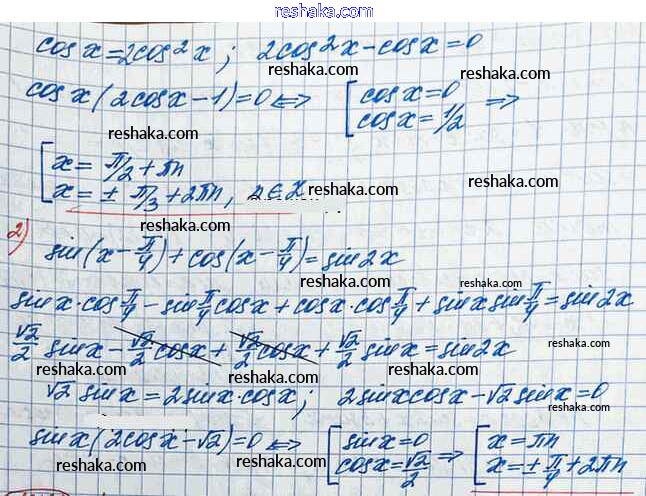 reshaka.com
cos x = 2cos²x; 2cos²x - cosx = 0
reshaka.com
reshaka.com
cos x(2cosx - 1) = 0 ⟺ [cosx = 0 ⟹
[cosx = 1/2
reshaka.com reshaka.com
[x = π/2 + πn
[x = ± π/3 + 2πn, n ∈ Z
reshaka.com
reshaka.com
reshaka.com
2)
sin(x - π/4) + cos(x - π/4) = sin2x
reshaka.com
reshaka.com
sinx·cosπ/4 - sinπ/4 cosx + cosx·cosπ/4 + sinx sinπ/4 = sin2x
reshaka.com
√2/2 sinx - √2/2 cosx + √2/2 cosx + √2/2 sinx = sin2x
reshaka.com
reshaka.com
√2 sinx = 2sinx·cosx; 2sinxcosx - √2 sinx = 0
reshaka.com
reshaka.com
sinx(2cosx - √2) = 0 ⟺ [sinx = 0 ⟹ [x = πn
[cosx = √2/2 [x = ± π/4 + 2πn
reshaka.com
reshaka.com
reshaka.com